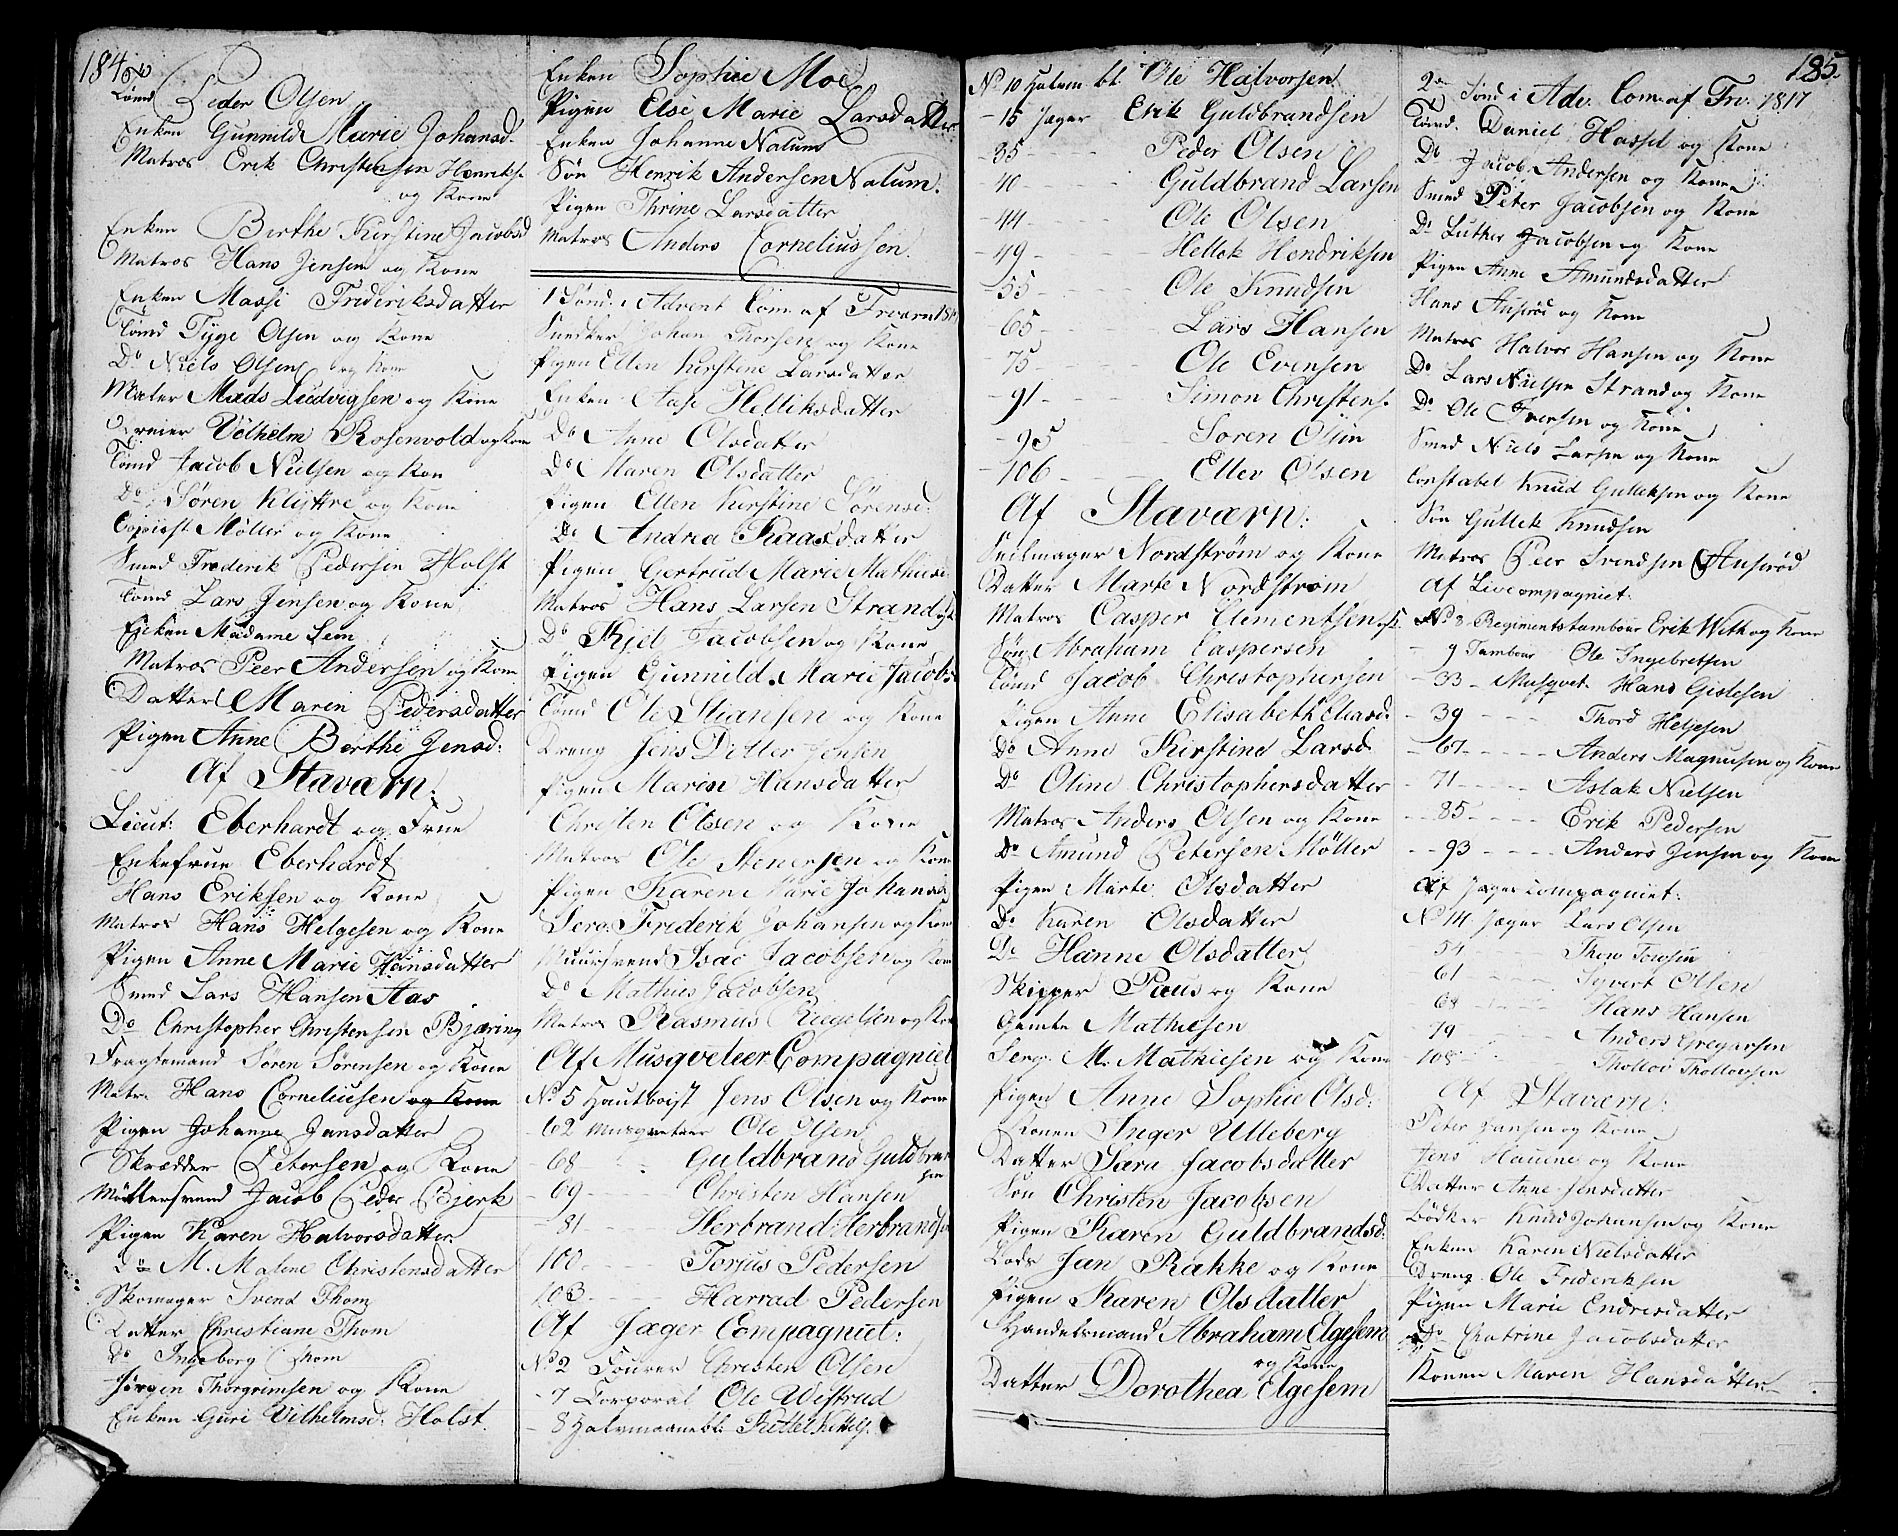 184
Tømd Peder Olsen
Enken Gunnild Marie Johansd.
Matros Erik Christensen Henriks.
og Kone
Enken Birthe Kirstine Jacobsd
Matros Hans Jensen og Kone
Enken Massi Frideriksdatter
Tømd Tyge Olsen og Kone
Do Niels Olsen og Kone
Maler Mads Ludvigsen og Kone
Vilhelm Rosenvold og Kone
Tømd Jacob Nielsen og Kone
Do Søren Klyttre og Kone
Copiist Møller og Kone
Smed Frederik Pedersen Holst
Tømd Lars Jensen og Kone
Enken Madame Lem
Matros Peer Andersen og Kone
Datter Maren Pedersdatter
Pigen Anne Berthe Jensd:
Af Staværn:
Lieut: Eberhardt og Frue
Enkefrue Eberhardt
Hans Eriksen og Kone
Matros Hans Helgesen og Kone
Pigen Anne Marie Hansdatter
Smed Lars Hansen Aas
Do Christopher Christensen Bjæring
Fragtemand Søren Sørensen og Kone
Matr. Hans Corneliusen og Kone
Pigen Johanne Jansdatter
Skrædder Petersen og Kone
Møllersvend Jacob Peder Bjerk
Pigen Karen Halvorsdatter
do M. Malene Christensdatter
Skomager Svend Thom
Datter Christiane Thom
Do Ingeborg Thom
Jørgen Thorgrimsen og Kone
Enken Guri Vilhelmsd: Holst.
Enken Sophie Moe
Pigen Else Marie Larsdatter
Enken Johanne Nalum
Søn Henrik Andersen Nalum.
Pigen Thrine Larsdatter
Matros Anders Corneliussen.
1 Sønd: Advent Com af Frværn 1817
Snedker Johan Thorsen og Kone
Pigen Ellen Kirstine Larsdatter
Enken Aase Helliksdatter
Do Anne Olsdatter
Do Maren Olsdatter
Pigen Ellen Kirstine Sørensd:
Do Andrea Kaasdatter
Pigen Gertrud Marie Mathiesd
Matros Hans Larsen Strand og K
Do Kjel Jacobsen og Kone
Pigen Gunnild Marie Jacobs
Tømd Ole Stiansen og Kone
Dreng Jens Ditler Jensen
Pigen Maren Hansdatter
Christen Olsen og Kone
Matros Ole Stenersen og Kone
Pigen Karen Marie Johansd
Serg. Frederik Johansen og Kone
Muursvend Isac Jacobsen og Kone
Do Mathies Jacobsen
Matros Rasmus Riegelsen og Kone
Af Musqveteer Compagniet
No 5 Hautboist Jens Olsen og Kone
- 62 Musqueteer Ole Olsen
- 68 Guldbrand Guldbrand
sen
- 69 Christen Hansen
- 81 Herbrand Herbrands
100 Torius Pedersen
103 Harrad Pedersen
Af Jæger Compagniet:
No 2 Fourer Christen Olsen
- 7 Corporal Ole Wistrud
- 8 Halvmaanebl. Kittel Kittels.
No 10 Halvm bl. Ole Halvorsen
- 15 Jæger Erik Guldbrandsen
- 35 Peder Olsen
- 40 Guldbrand Larsen
- 44 Ole Olsen
- 49 Hellek Hendriksen
55 Ole Knudsen
- 65 Lars Hansen
- 75 Ole Evensen
- 91 Simon Christens.
- 95 Soren Olsen
- 106 Ellev Olsen
Af Staværn:
Seilmager Nordstrøm og Kone
Datter Marte Nordstrøm
Matros Casper Clementsen og K.
Søn Abraham Caspersen
Tømd Jacob Christophersen
Pigen Anne Elisabeth Eliasd:
Do Anne Kirstine Larsd
Do Oline Christophersdatter
Matros Anders Olsen og Kone
Do Amund Petersen Møller
Pigen Marte Olsdatter
Do Karen Olsdatter
Do Hanne Olsdatter
Skipper Paus og Kone
Gamle Mathiesen
Serg. M. Mathiesen og Kone
Pigen Anne Sophie Olsd:
Konen Inger Ulleberg
Datter Sara Jacobsdatter
Søn Christen Jacobsen
Pigen Karen Guldbrandsd:
Lods Jan Rakke og Kone
Pigen Karen Olsdatter
Handelsmand Abraham Elgesem
og Kone
Datter Dorothea Elgesem
185.
2den Sønd i Adv. Com af Fr: 1817
Tømd. Daniel Hassel og Kone
Do Jacob Andersen og Kone
Smed Peter Jacobsen og Kone
Do Luther Jacobsen og Kone
Pigen Anne Amundsdatter
Hans Ansrød og Kone
Matros Halvor Hansen og Kone
Do Lars Nielsen Strand og Kone
Do Ole Iversen og Kone
Smed Niels Larsen og Kone
Constabel Knud Gulleksen og Kone
Søn Gullek Knudsen
Matros Peer Svendsen Ansrød
Af Livcompagniet:
No 3 Regimentstambour Erik With og Kone
- 9 Tambour Ole Ingebretsen
- 33 - Musqvet. Hans Gislesen
- 39 Thord Helgesen
- 67 Anders Magnusen og Kone
- 71 Aslak Nielsen
- 85 Erik Pedersen
- 93 Anders Jensen og Kone
Af Jægercompagniet:
No 14 Jæger Lars Olsen
54 Thow Towsen
61 Syvert Olsen
- 68 Hans Hansen
79 Anders Gregersen
- 108 Thollov Thollovsen
Af Staværn:
Peter Hansen og Kone
Jens Hauene og Kone
Datter Anne Jensdatter
Bødker Knud Johansen og Kone
Enken Karen Nielsdatter
Dreng Ole Frideriksen
Pigen Marie Endresdatter
Do Chatrine Jacobsdatter
Konen Maren Hansdatter